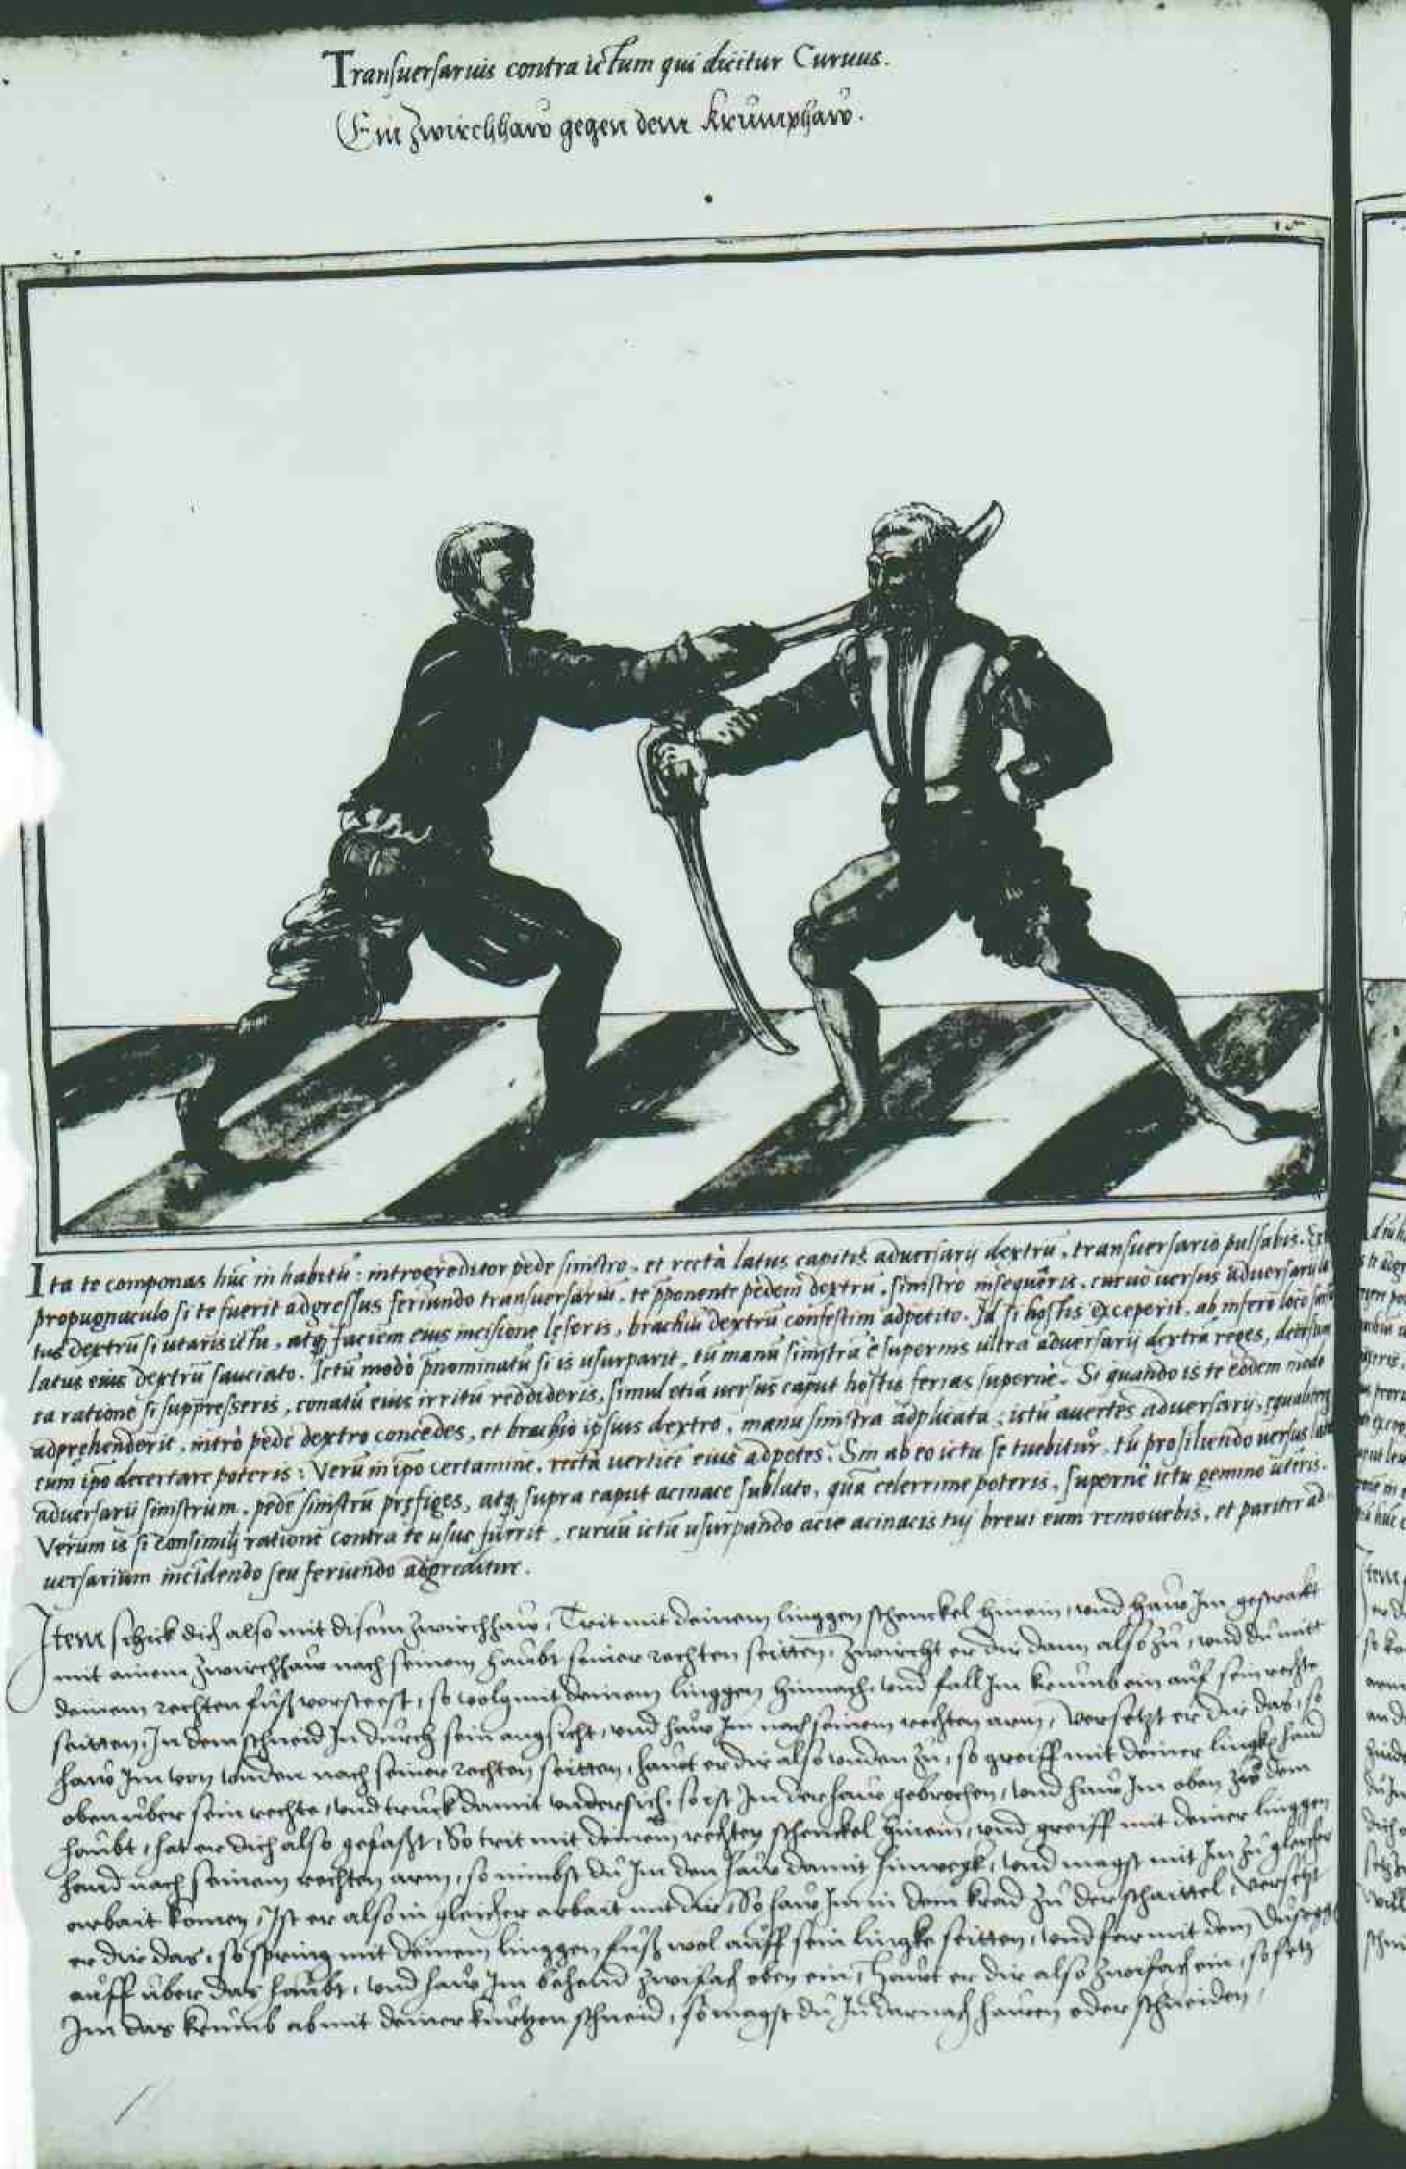 Transuersarius contra ictum qui dicitur Curuus.
Ein Zwirchhaw gegen dem krumphaw.
Ita te componas hũc in habitũ: introgreditor pede sinistro, et rectà latus capitis aduersarij dextrũ, transuersario pulsabis.
propugnaculo si te fuerit adgressus feriundo transuersariũ, te p̃ponente pedem dextrũ, sinistro insequẽris, curuo uersus aduersarij la
tus dextrũ si utaris ictu, atq; faciem eius incisione leseris, brachiũ dextrũ confestim adpetito. Id si hostis exceperit, ab infero loco
latus eius dextrũ sauciato. Ictũ modò p̃nominatũ si is usurparit, tũ manũ sinistrã è supernis ultra aduersarij dextrã reges, deorsum
ea ratione si suppresseris, conatũ eius irritũ reddideris, simul etiã uersus caput hostis ferias supernè. Si quando is te eodem modo
adprehenderit, intrò pede dextro concedes, et brachio ipsius dextro, manu sinistra adplicata, ictũ auertes aduersarij, equaliterq;
cum ipõ decertare poteris: Verũ in ipo certamine, rectà uerticẽ eius adpetes. Sin ab eo ictu se tuebitur, tũ prosiliendo uersus latus
aduersarii sinistrum, pedẽ sinistrũ prefiges, atq; supra caput acinace sublato, quã celerrime poteris, supernè ictu gemino uteris.
Verum is si consimili ratione contra te usus fuerit, curuũ ictũ usurpando acie acinacis tui breui eum remouebis, et pariter ad
uersarium incidendo seu feriundo adgreditur.
Item schick dich also mit disem zwirchhaw, Trit mit deinem linggen schenckel hinein, und haw Im gestrakt
mit ainem zwirchhaw nach seinem haubt seiner rechten seitten, zwircht er dir dann also zu, und du mitt
deinem rechten fuß vorsteest, so volg mit deinem linggen hinnach, und fall Im krumb ein auf sein rechte
seitten, In dem schneid In durch sein angsicht, und haw Im nach seinem rechten arm, Versetzt er dir das, so
haw Im von unden nach seiner rechten seitten, hawt er dir also unden zu, so greiff mit deiner lingkhen hand
oben uber sein rechte, und truck damit undersich, so ist Im der haw gebrochen, und haw Im oben zu dem
haubt, hat er dich also gefaßt, So trit mit deinem rechten schenckel hinein, und greiff mit deiner linggen
hand nach seinem rechten arm, so nimbst du Im den haw damit hinwegk, und magst mit Im zu gleicher
arbait komen, Ist er also in gleicher arbait mit dir, So haw Im in dem krad zu der schaittel, versetzt
er dir das, so spring mit deinem linggen fuß wol auff sein lingke seitten, und far mit dem Dusegg
auff uber das haubt, und haw Im behend zwifach oben ein, Hawt er dir also zwifach ein, so setz
Im das krumb ab mit deiner kurtzen schneid, so magst du In darnach hawen oder schneiden,